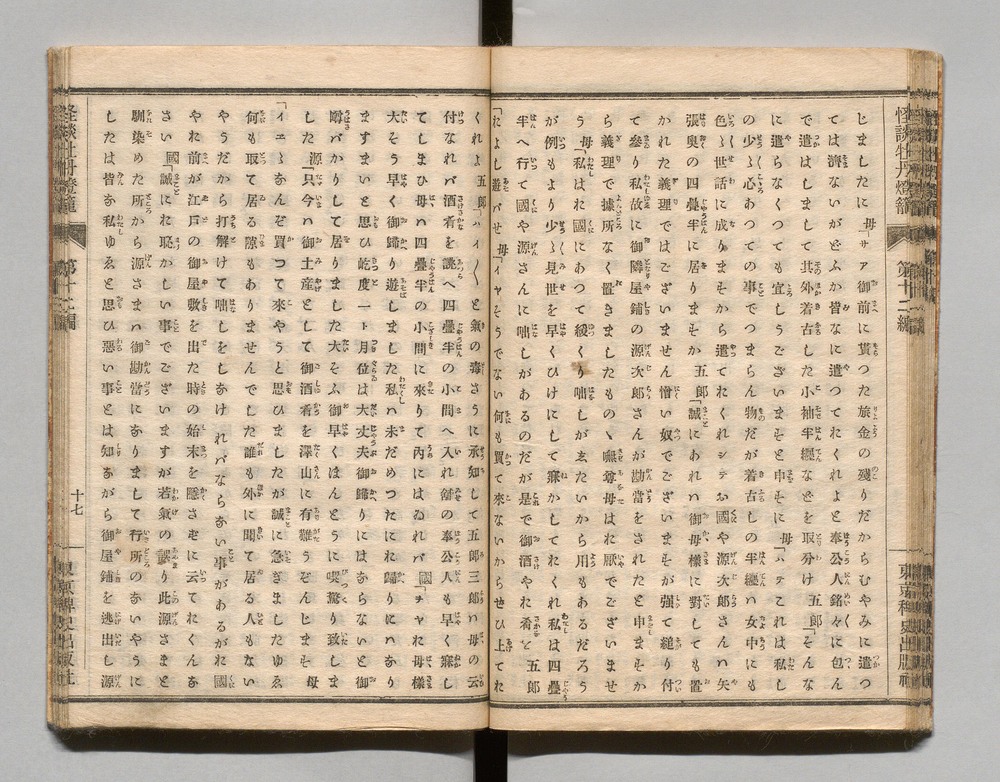 怪談牡丹燈籠
第十二編
東京稗史出版社
じましたに 母「サア御前に貰つた旅金の殘りだからむやみに遣つ
ては濟ないがどふか皆なに遣つてくれよと奉公人銘々に包ん
で遣はしまして其外着古した小袖半纒などを取分け 五郎「そんな
に遣さなくつても宜しうございますと申すに 母「イヽヱこれは私し
の少々心あつての事でつまらない物だが着古しの半纒ハ女中にも
色々世話に成りますから遣てくれシテお國や源次郎さんハ矢
張奧の四疊半に居りますか 五郎「誠にあれハ御母樣に對しても置
かれた義理でハございません憎い奴でございますが強て縋り付
て參り私故に御隣屋鋪の源次郎さんが勘當をされたと申ますか
ら義理で據所なく置きましたものヽ嘸尊母はれ厭でございませ
う 母「私はれ國にあつて緩くり咄しがゑたいから用もあるだらう
が例もより少々見世を早くひけにして寐かしてれくれ私は四疊
半へ行て國や源さんに咄しがあるのだが是で御酒やれ肴を 五郎
「およし遊バせ 母「イヤそうでない何も買て來ないからせひ上てれ
くれよ 五郎「ハイ〳〵と氣の毒さうに承知して五郎三郎ハ母の云
付なれバ酒肴を誂へ四疊半の小間へ入れ舖の奉公人も早く寐し
てしまひ母ハ四疊半の小間に來りて內にはゐれバ 國「ヲヤれ母樣
大そう早く御歸り遊しました私ハ未だめつたにれ歸りにハなり
ますまいと思ひ屹度一ト月位は大丈夫御歸りにはならないと御
噂バかりして居りました大そふ御早くほんとうに喫驚り致しま
した 源「只今ハ御土產として御酒肴を澤山に有難うぞんじます 母
「イヱ〳〵なんぞ買つて來やうと思ひましたが誠に急ぎましたゆゑ
何も取て居る隙もありませんでした誰も外に聞て居る人もない
やうだから打解けて咄しをしなけれバならない事があるがれ國
やれ前が江戶の御屋敷を出た時の始末を隱さずに云つてれくんな
さい 國「誠にれ恥かしい事でございますが若氣の誤り此源さまと
馴染めた所から源さまハ御勘當になりまして行所のないやうに
したは皆な私しゆゑと思ひ惡い事とは知ながら御屋鋪を逃出し源
怪談牡丹燈籠
第十二編
十七
東京稗史出版社